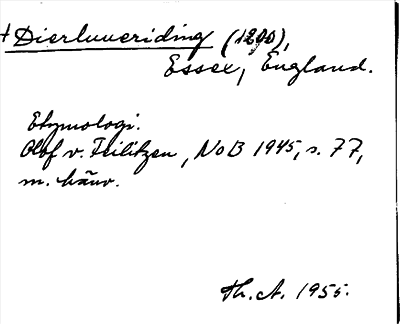 † Dierluueriding (1290),
Essex, England.
Etymologi.
Olof v. Feilitzen, NoB 1945, s. 77,
m. hänv.
Th. A. 1955.